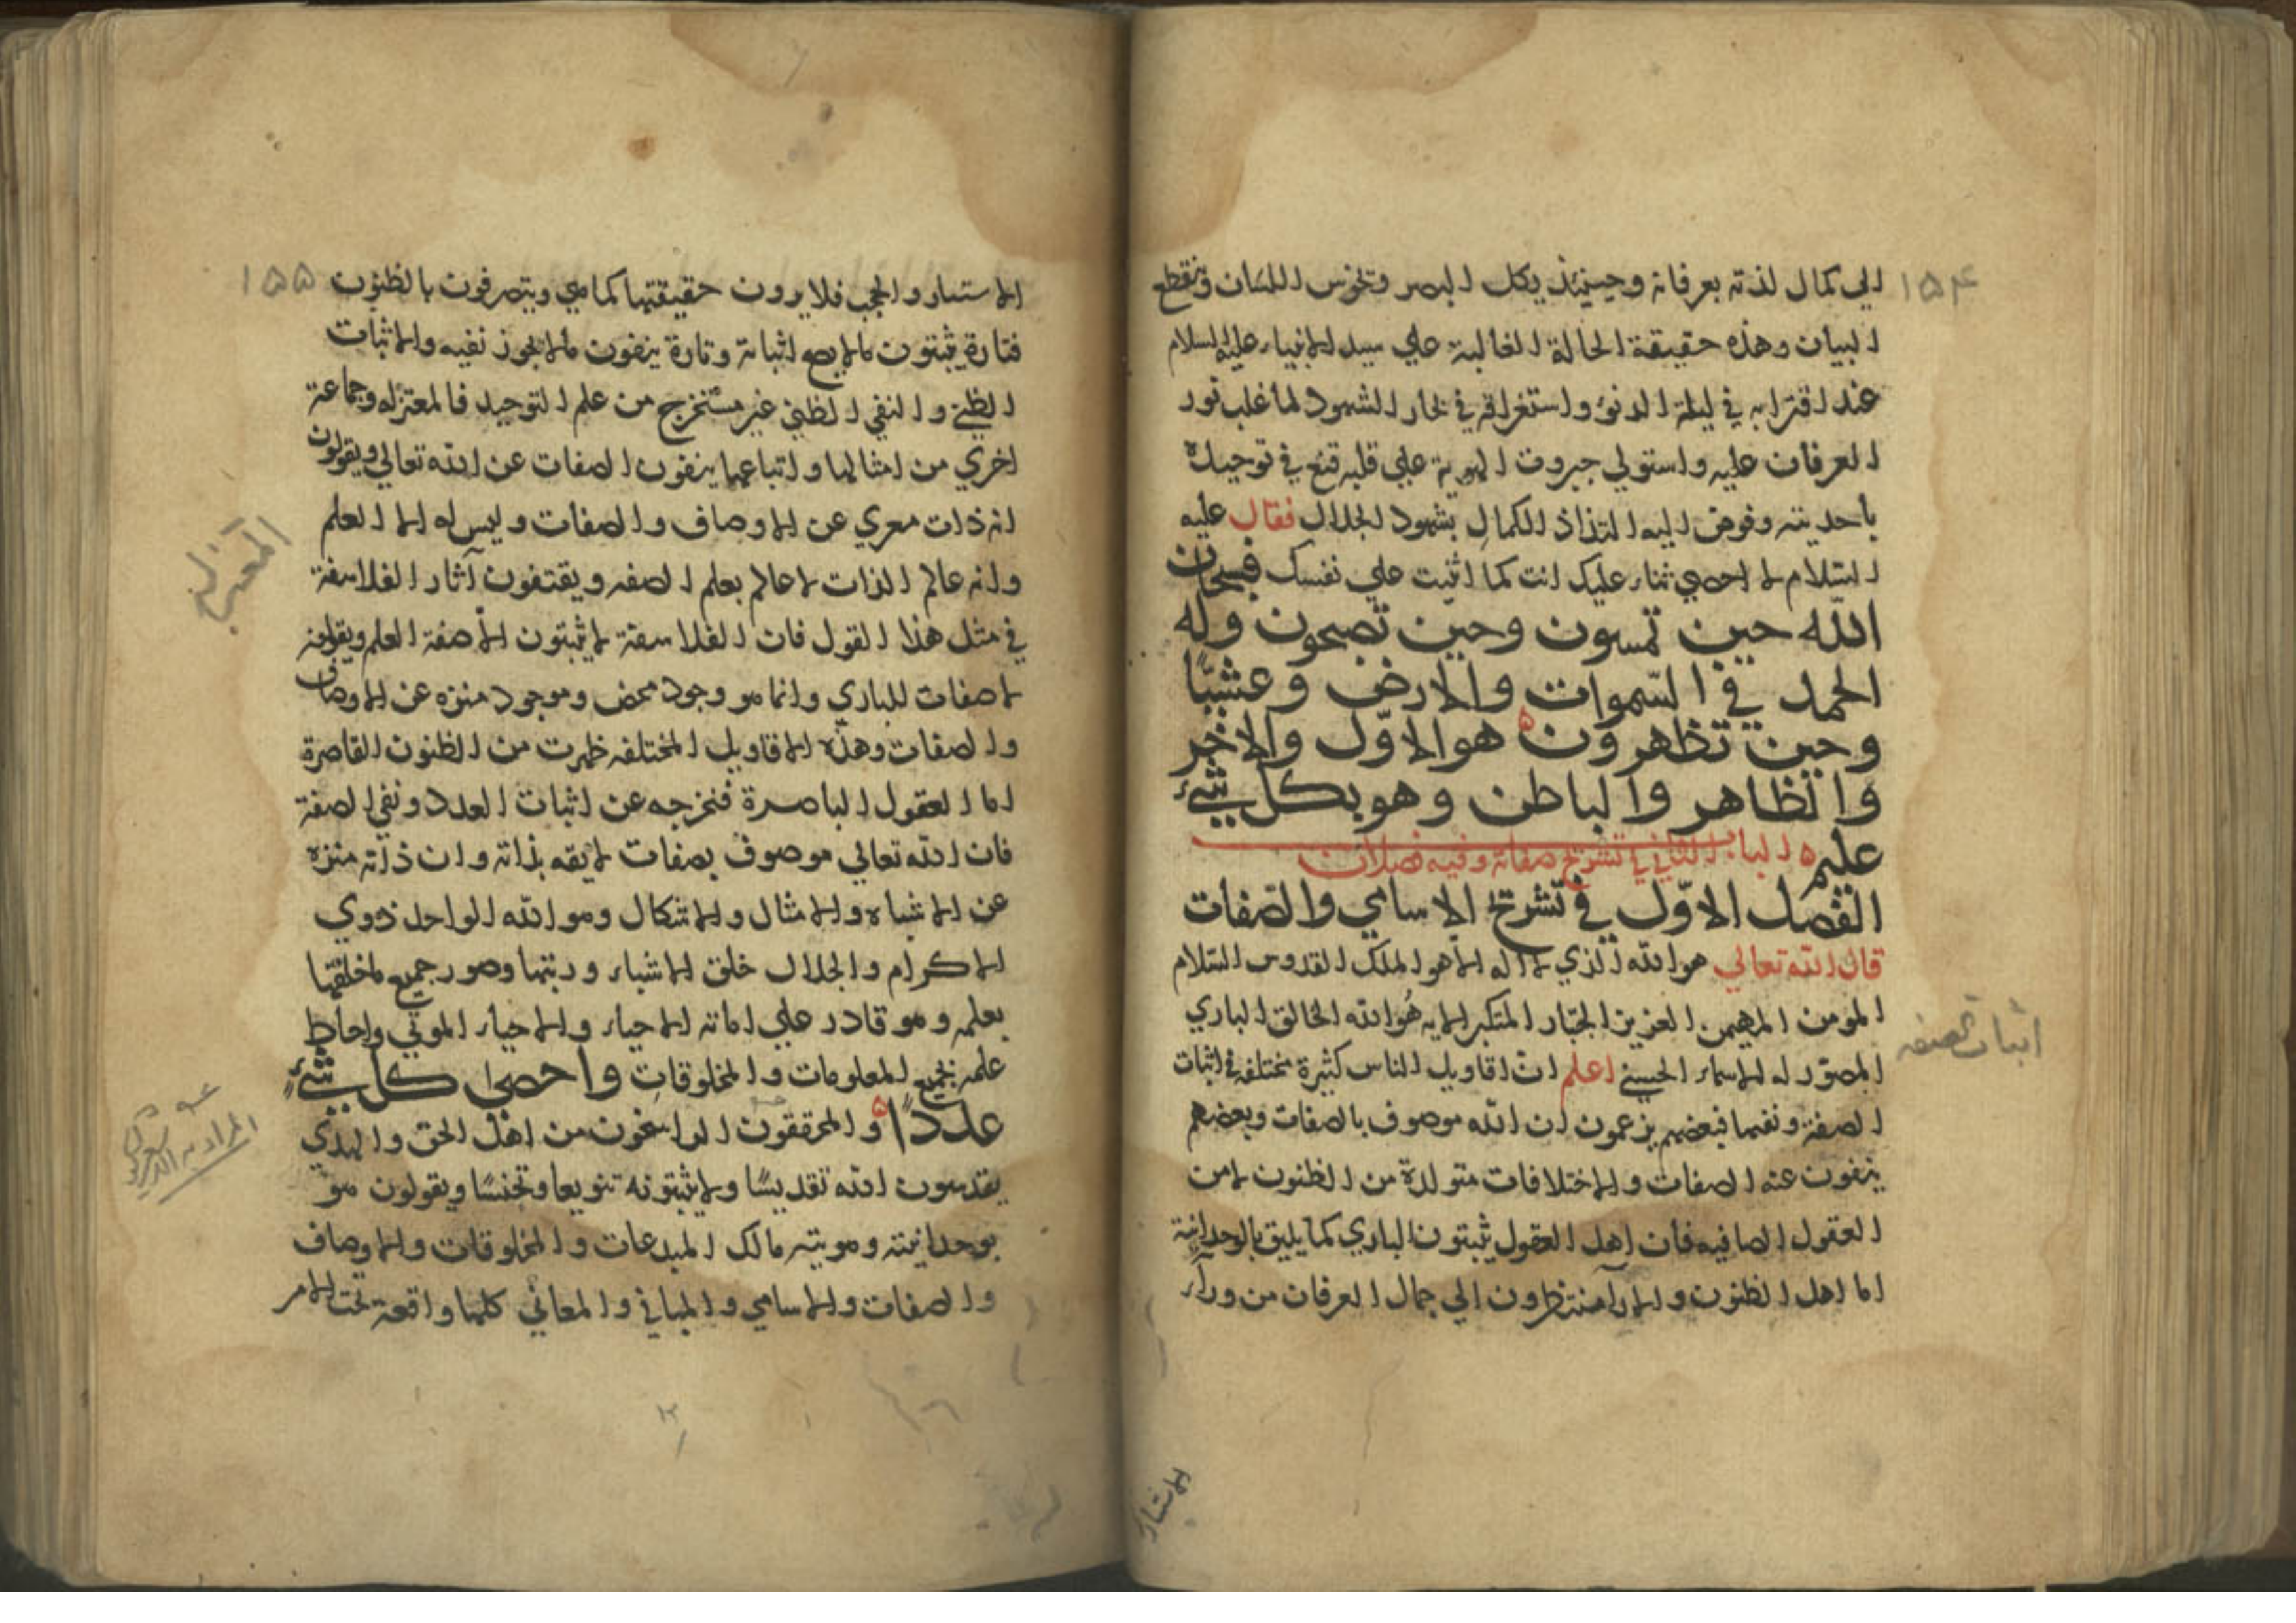 ١٥٤
الي كمال لذته بعرفانه وحينئذ يكل البصر وتخرس اللسان وينقطع
البيان وهذه حقيقة الحالة الغالبة علي سيد الانبياء عليه السلام
عند اقترابه في ليلة الدنو واستغراقه في بحار الشهود لما غلب نور
العرفان عليه واستولي جبروت الهوية علي قلبه قنع في توحيده
باحديته وفوض اليه التذاذ الكمال بشهود الجلال فقال عليه
السلام لا احصي ثناء عليك انت كما اثنيت علي نفسك فسبحان
الله حين تمسون وحين تصبحون وله
الحمد في السموات والارض وعشيّا
وحين تظهرون هو الاوّل والاخر
والظاهر والباطن وهو بكل شيء
عليم الباب الثاني في تشريح صفاته وفيه فصلان
الفصل الاوّل في تشريح الاسامي والصّفات
قال الله تعالي هو الله الذي لا اله الا هو الملك القدوس السّلام
المومن المهيمن العزيز الجبّار المتكبر الايه هُو الله الخالق الباري
المصوّر له الاسماء الحسني اعلم ان اقاويل الناس كثيرة مختلفه في اثبات
اثبات الصفه
الصفة ونفيها فبعضهم يزعمون ان الله موصوف بالصفات وبعضهم
ينفون عنه الصفات والاختلافات متولدة من الظنون لا من
العقول الصافيه فان اهل العقول يثبتون الباري كما يليق بالوحدانية
اما اهل الظنون والارآ منتظرون الي جمال العرفان من ورآء
الاستار
١٥٥
الاستار والحجب فلا يرون حقيقتها كما هي ويتصرفون بالظنون
فتارة يثبتون ما لا يصح اثباته وتارة ينفون ما لا يجوز نفيه والاثبات
الظني والنفي الظني غير مستخرج من علم التوحيد فالمعتزله وجماعة
اخري من امثالها واتباعها ينفون الصفات عن الله تعالي ويقولون
انه ذات معري عن الاوصاف والصفات وليس له الا العلم
المعتزلة
وانه عالم الذات لا عالم بعلم الصفه ويقتفون آثار الفلاسفة
في مثل هذا القول فان الفلاسفة لا يثبتون الّا صفة العلم ويقولون
لا صفات للباري وانما هو وجود محض وموجود منزه عن الاوصاف
والصفات وهذه الاقاويل المختلفه ظهرت من الظنون القاصرة
اما العقول الباصرة فنخرجه عن اثبات العدد ونفي الصفة
فان الله تعالي موصوف بصفات لايقه بذاته وان ذاته منزه
عن الاشباه والامثال والاشكال وهو الله الواحد ذوي
الاكرام والجلال خلق الاشياء ورتبها وصور جميع ما خلقها
بعلمه وهو قادر علي اماته الاحياء والاحياء الموتي واحاط
علمه بجميع المعلومات والمخلوقات واحصى كل شيءٍ
عددًا والمحققون الراسخون من اهل الحق والهدي
المراد به
يقدسون الله تقديسًا ولا يثبتونه تنويعا وتجنسًا ويقولون هو
بوحدانيته وهويته مالك المبدعات والمخلوقات والاوصاف
والصفات والاسامي والمباني والمعاني كلها واقعة تحت الامر